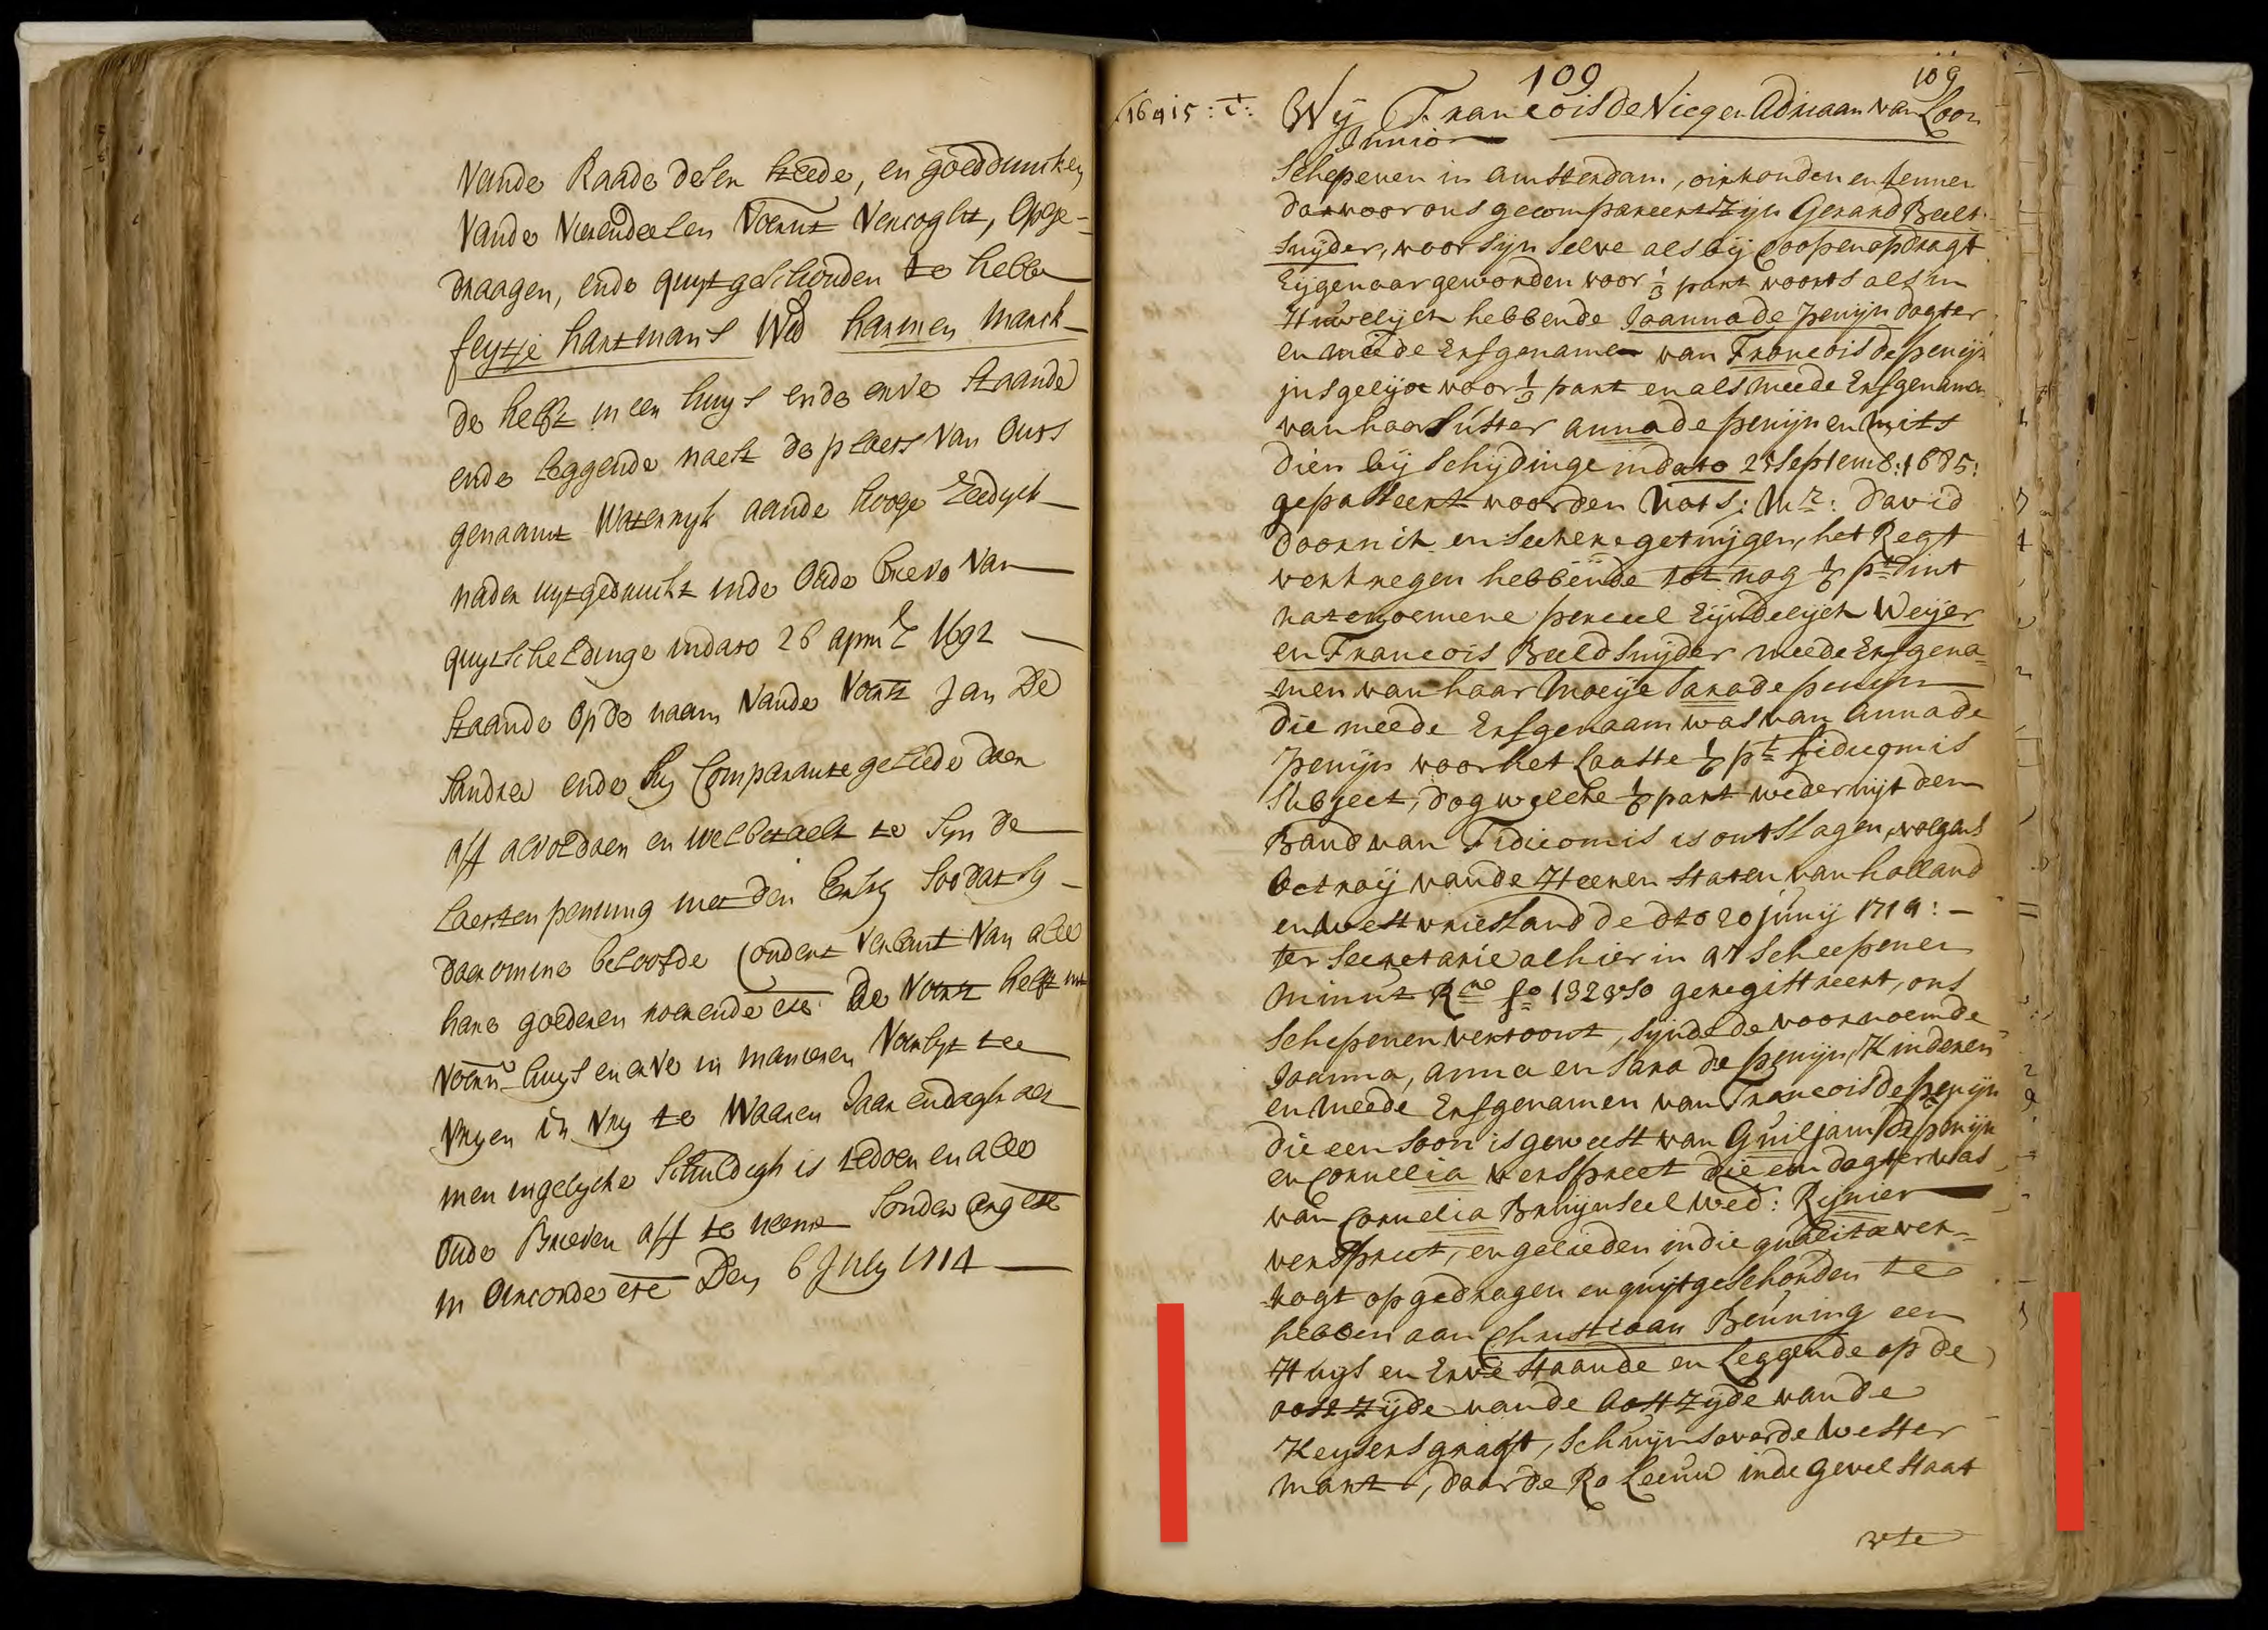 vande Raade deser steede, en goeddunken
vande Vierendeelen Voernt Vercoght, opge-
draagen, ende quytgeschouden te hebbe
feytje hartmans Wed harmen Marck-
de helft in een huys ende erve staande
ende leggende naest de plaets van outs
genaamt Waterryk aande hooge Zeedyck
nader uytgedruckt inde oude brieve van
quytscheldinge indato 26 april 1692
staande op de naam vande Voernt Jan De
ende sy Comparante geleede daer
aff al voldaen en wel betaelt te syn de
laetsten penning met den Eerste Soodat sy
daeromme beloofde (onder Verbant van alle
hare goederen roerende etc: de Voernt helft int
voern huys en erve in manieren Voerlyt te
vryen en vry te Waaren Jaar en dagh als
men ingelycke Schuldigh is te doen en alle
oude Brieven aff te neeme Sonder erg etc
in oirconde etc Den 6 July 1714
109
109
16415: t:
Wij Francois de Vicq en Adriaan van Loon
Junior
Schepenen in Amsterdam, oirkonden en kennen
dat voor ons gecompareert zijn Gerard Beelt-
snijder, voor sijn selve als bij Coop en opdragt
Eijgenaar geworden voor 1/3 part voorts als in
Huwelijck hebbende Joanna de Penijn dogter
en meede Erfgenamen van Francois de penijn
insgelijx voor 1/3 part en als meede Erfgenamen
van haar suster anna de penijn en mits
dien bij Schijdinge in dato 25 Septemb: 1685:
gepasseert voor den Nots: Mr: David
doornik en seekere getuijgen, het Regt
verkregen hebbende tot nog 1/6 pt dint
natenoemene perceel Eijndelijck Weijer
en Francois Beeldsnijder meede Erfgena-
men van haar moeije Sara de penijn
die meede Erfgenaam was van anna de
penijn voor het laatste 1/6 pt fidicomis
Subject, dog welcke 1/6 part weder uijt dem
Band van Fidicomis is ontslagen, volgens
Octroij vande Heeren Staten van holland
en westvriesland de dto 20 junij 1714: -
ter Secretarie alhier in 't 97 Scheepenen
minut Rno fo 132 vso geregistreert, ons
Schepenen vertoont, sijnde de voornoemde
Joanna, anna en Sara de penijn, Kinderen
en meede Erfgenamen van Francois de penijn
die een soon is geweest van Guiljam de penijn
en Cornelia verspreet die een dogter was
van Cornelia Bruijnseel wed: Rijnier
verspreet, en gelieden in die qualita ver-
kogt opgedragen en quijtgeschonden te
hebben aan Christiaan Beuning een
Huijs en Erve staande en leggende op de
oostzijde vande oostzijde vande
Keysersgraft, schuijns over de wester
markt, daar de Ro Leeuw inde gevel staat